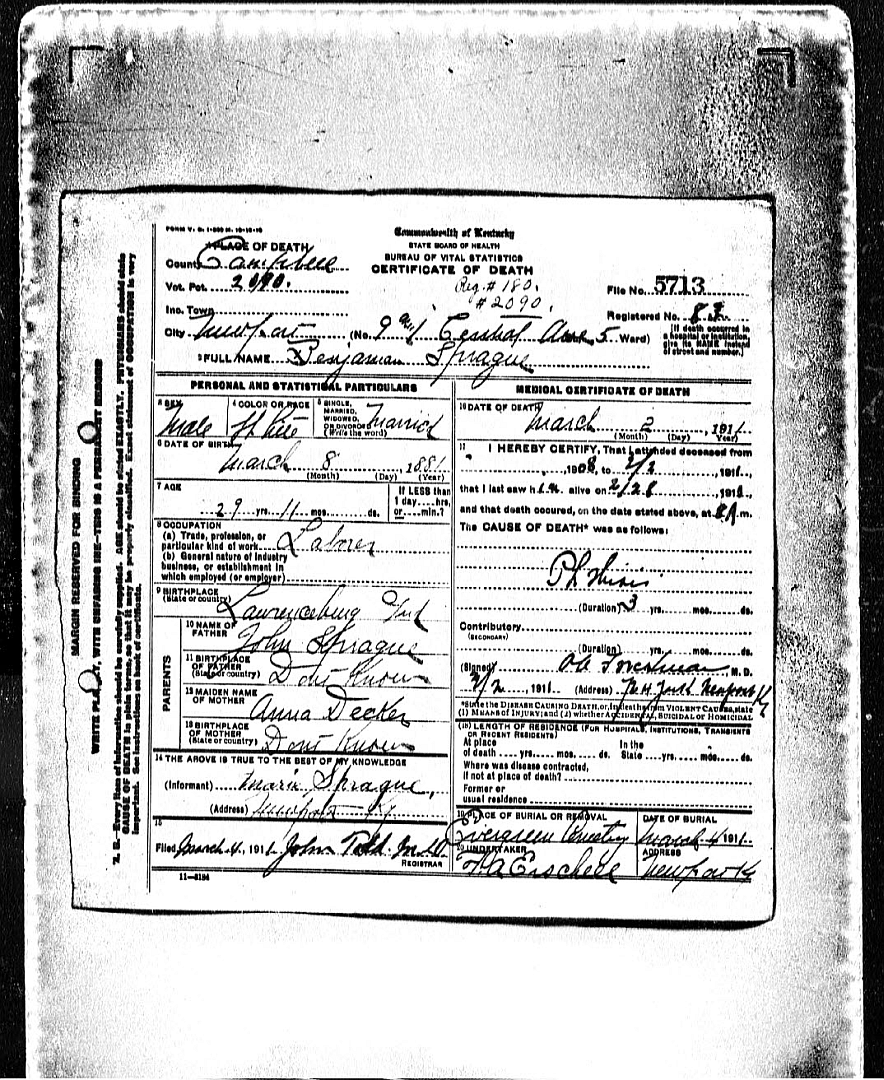 FORM V. S. 1-
Commonwealth of Kentucky
STATE BOARD OF HEALTH
BUREAU OF VITAL STATISTICS
CERTIFICATE OF DEATH
PLACE OF DEATH
County Campbell
Vot. Pct. 2090.
Inc. Town
City Newport (No. 9th Central Ave 5 Ward)
Reg. # 180.
# 2090.
File No. 5713
Registered No.
(If death occurred in
a hospital or institution
give its NAME instead
of street and number.)
2 FULL NAME Benjaman Sprague
PERSONAL AND STATISTICAL PARTICULARS
3 SEX
Male
4 COLOR OR RACE
White
5 SINGLE,
MARRIED,
WIDOWED,
OR DIVORCED
(Write the word)
Married
6 DATE OF BIRTH
March 8, 1881
(Month) (Day) (Year)
7 AGE
29 yrs. 11 mos. ds.
If LESS than
1 day....hrs.
or....min.?
8 OCCUPATION
(a) Trade, profession, or
particular kind of work Laborer
(b) General nature of industry
business, or establishment in
which employed (or employer)
9 BIRTHPLACE
(State or country)
Lawrenceburg Ind
PARENTS
10 NAME OF
FATHER
John Sprague
11 BIRTHPLACE
OF FATHER
(State or country)
Dont Know
12 MAIDEN NAME
OF MOTHER
Anna Decker
13 BIRTHPLACE
OF MOTHER
(State or country)
Dont Know
14 THE ABOVE IS TRUE TO THE BEST OF MY KNOWLEDGE
(Informant) Marie Sprague,
(Address) Newport Ky
15
Filed March 4, 1911 John Todd M.D.
REGISTRAR
11—5184
MEDICAL CERTIFICATE OF DEATH
16 DATE OF DEATH
March 2, 1911
(Month) (Day) (Year)
17 I HEREBY CERTIFY, That I attended deceased from
, 1908, to 3/2, 1911,
that I last saw him alive on 2/28, 1911,
and that death occured, on the date stated above, at 8 A m.
The CAUSE OF DEATH* was as follows:
Phthisis
(Duration) 3 yrs. mos. ds.
Contributory
(SECONDARY)
(Duration) yrs. mos. ds.
(Signed) M. D.
3/2, 1911 (Address) York Newport Ky
*State the DISEASE CAUSING DEATH, or, in deaths from VIOLENT CAUSES, state
(1) MEANS OF INJURY; and (2) whether ACCIDENTAL, SUICIDAL OR HOMICIDAL
(18) LENGTH OF RESIDENCE (FOR HOSPITALS, INSTITUTIONS, TRANSIENTS
OR RECENT RESIDENTS)
At place of death yrs. mos. ds. In the State yrs. mos. ds.
Where was disease contracted,
if not at place of death?
Former or
usual residence
19 PLACE OF BURIAL OR REMOVAL
Evergreen Cemetery
DATE OF BURIAL
March 4 1911
20 UNDERTAKER
ADDRESS
Newport Ky
MARGIN RESERVED FOR BINDING
WRITE PLAINLY, WITH UNFADING INK—THIS IS A PERMANENT RECORD
N. B.—Every item of information should be carefully supplied. AGE should be stated EXACTLY. PHYSICIANS should state
CAUSE OF DEATH in plain terms, so that it may be properly classified. Exact statement of OCCUPATION is very
important. See instructions on back of certificate.